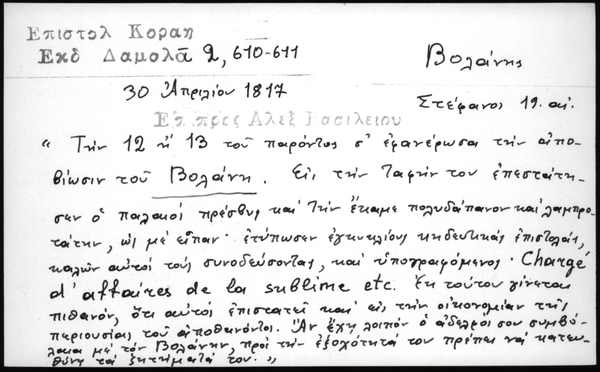 Επιστολ Κοραη
Εκδ Δαμολᾶ 2, 610-611
Βολάνης
30 Ἀπριλίου 1817
Στέφανος 19. αἰ.
Επ προς Αλεξ Βασιλειου
" Τὴν 12 ἢ 13 τοῦ παρόντος σ' ἐφανέρωσα τὴν ἀπο-
βίωσιν τοῦ Βολάνη. Εἰς τὴν ταφήν του ἐπεστάτη-
σεν ὁ παλαιὸς πρέσβυς καὶ τὴν ἔκαμε πολυδάπανον καὶ λαμπρο-
τάτην, ὡς μὲ εἶπαν· ἐτύπωσεν ἐγκυκλίους κηδευτικὰς ἐπιστολάς,
καλῶν αὐτοὺς τοὺς συνοδεύσοντας, καὶ ὑπογραφόμενος · Chargé
d'affaires de la sublime etc. Ἐκ τούτου γίνεται
πιθανόν, ὅτι αὐτὸς ἐπιστατεῖ καὶ εἰς τὴν οἰκονομίαν τῆς
περιουσίας τοῦ ἀποθανόντος. Ἂν ἔχῃ λοιπὸν ὁ ἀδελφός σου συμβό-
λαια μὲ τὸν Βολάνην, πρὸς τὴν ἐξοχότητά του πρέπει νὰ κατευ-
θύνῃ τὰ ζητήματά του. "